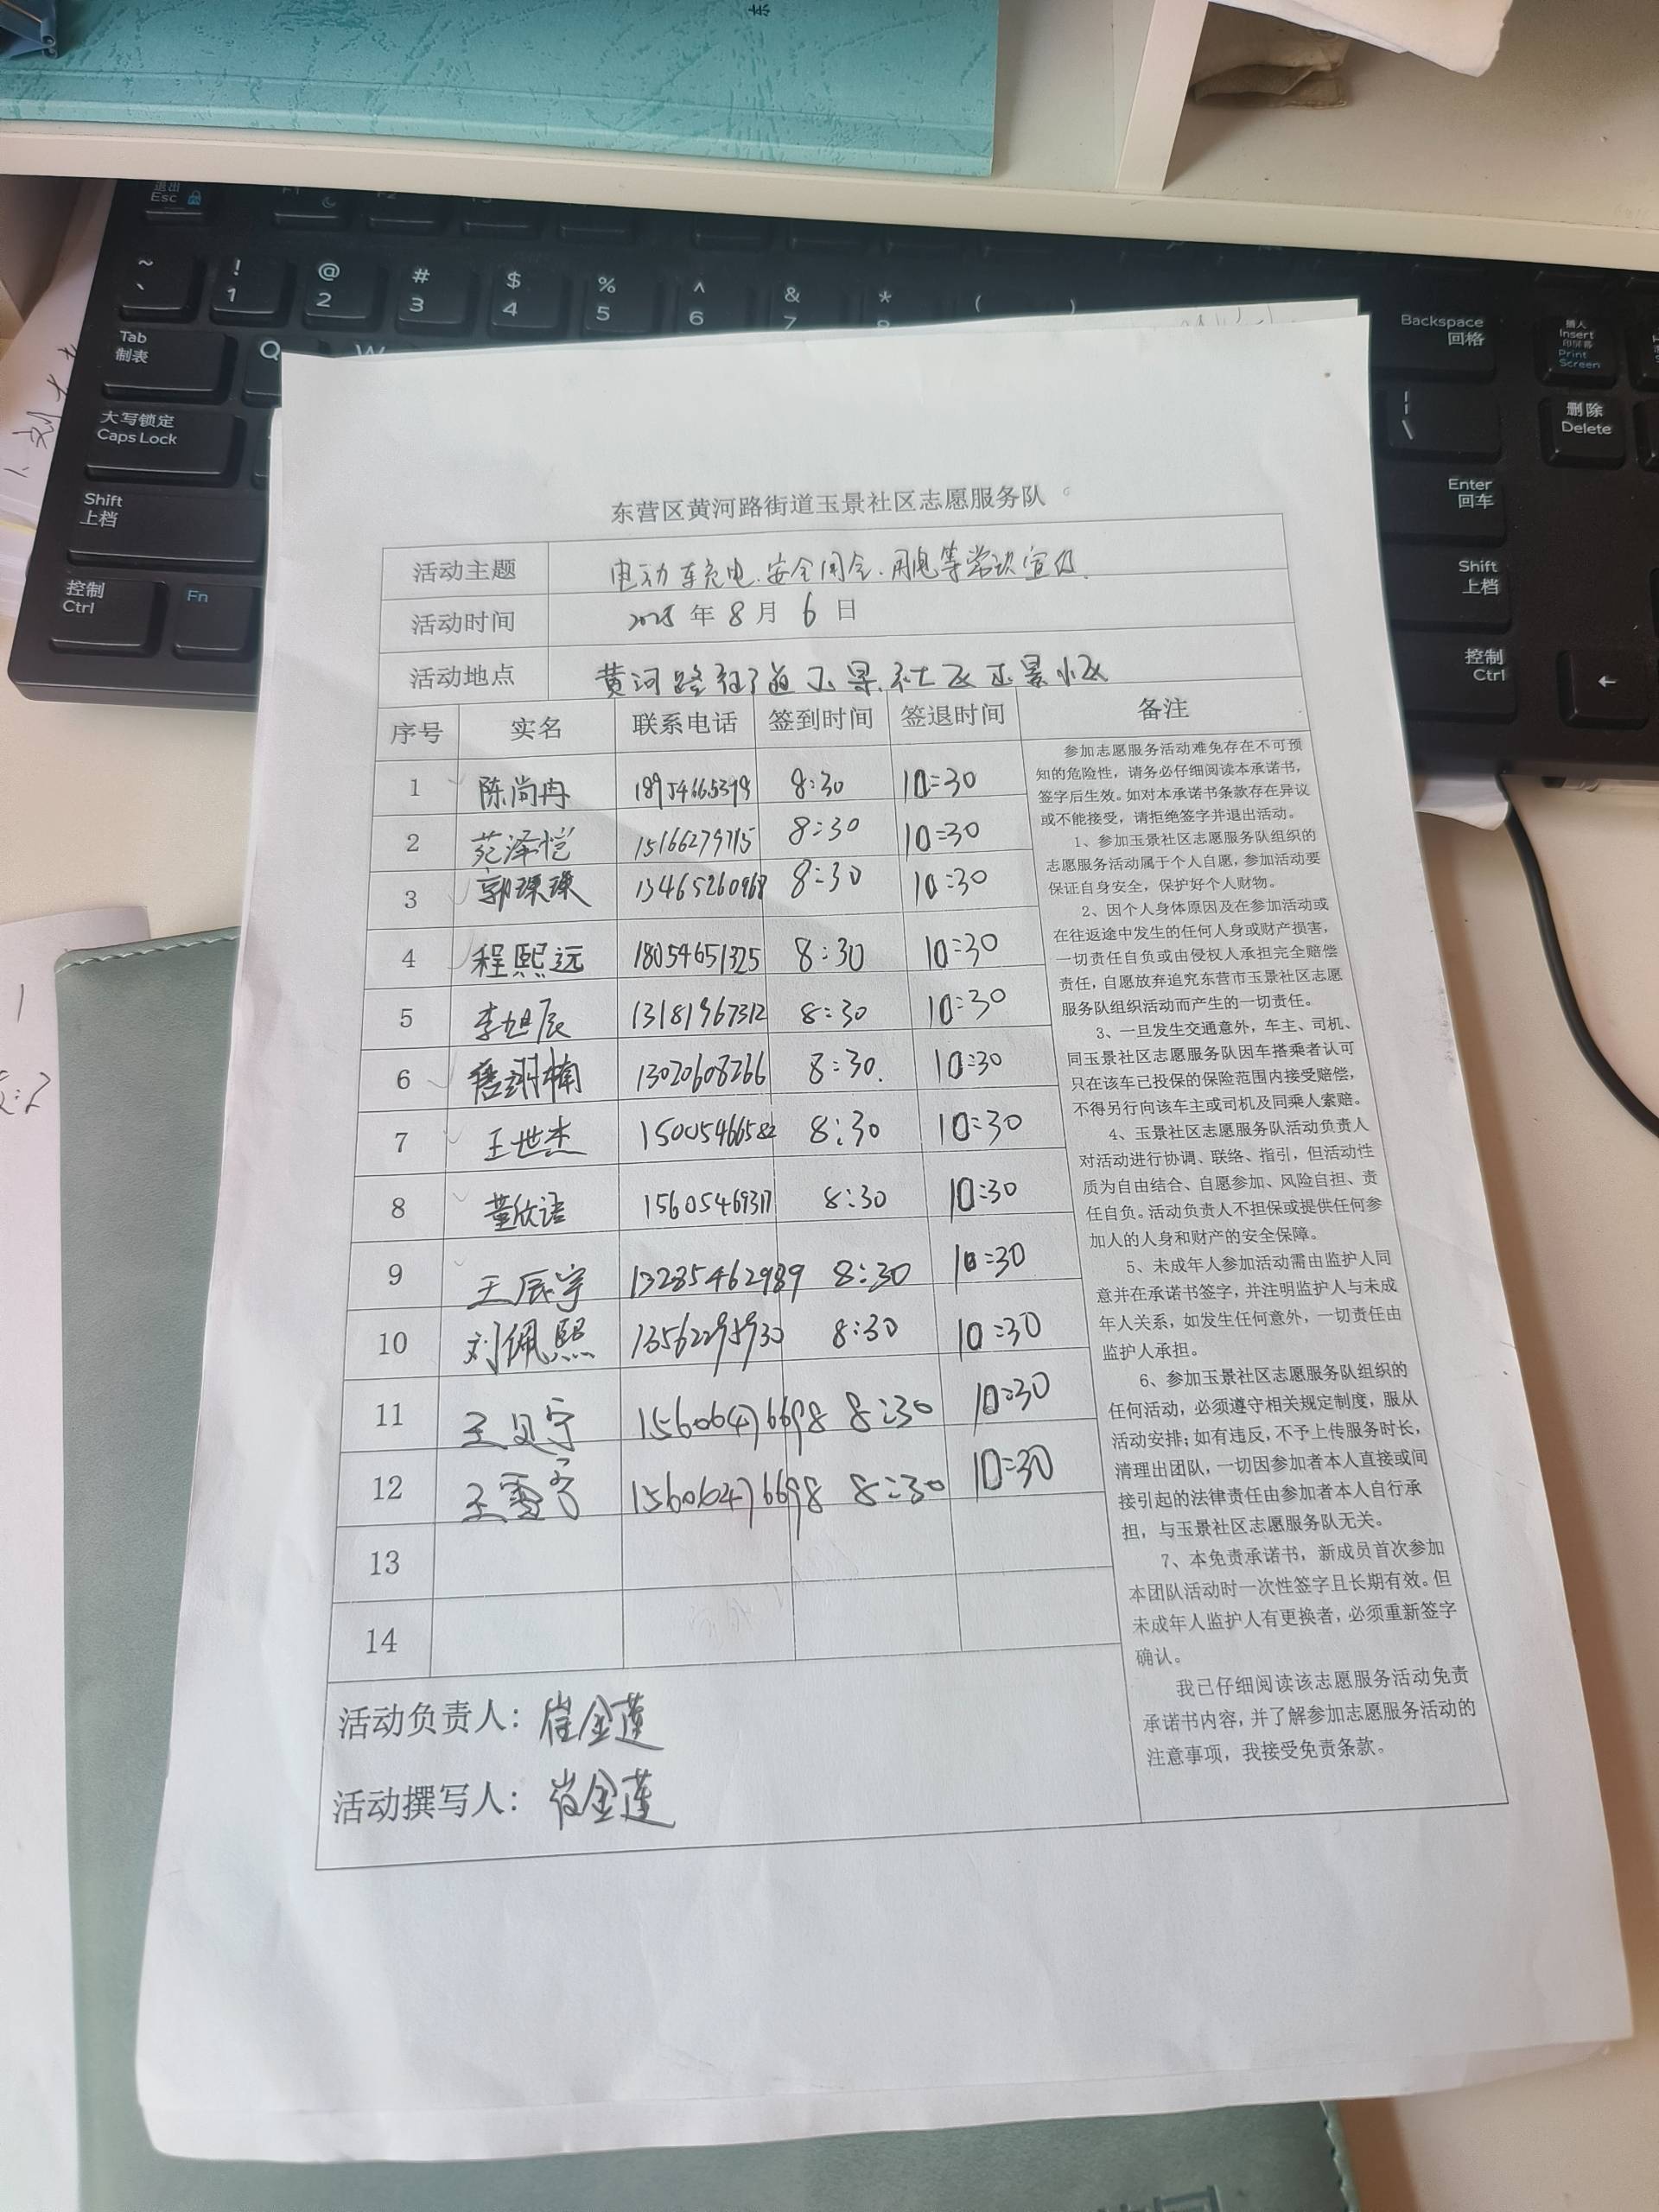 退出
Esc
F1
~
`
!
1
@
2
#
3
$
4
%
5
^
6
&
7
*
8
(
)
Backspace
回格
插入
Insert
Print
Screen
Tab
制表
Q
W
大写锁定
Caps Lock
删除
Delete
Shift
上档
Enter
回车
控制
Ctrl
Fn
Shift
上档
控制
Ctrl
东营区黄河路街道玉景社区志愿服务队
活动主题 电动车充电、安全用电等常识宣传
活动时间 2025年8月6日
活动地点 黄河路街道玉景社区玉景小区
序号 实名 联系电话 签到时间 签退时间 备注
1 陈尚冉 18954665379 8:30 10:30
2 苑泽恺 15166279715 8:30 10:30
3 郭璟璟 13465260968 8:30 10:30
4 程熙远 18054651325 8:30 10:30
5 李旭辰 13181967312 8:30 10:30
6 翊楠 13020608266 8:30 10:30
7 王世杰 15005466582 8:30 10:30
8 董欣语 15605469317 8:30 10:30
9 王辰宇 13285462989 8:30 10:30
10 刘佩熙 13562295930 8:30 10:30
11 王贝宁 15606476698 8:30 10:30
12 王雪宁 15606476698 8:30 10:30
13
14
活动负责人：崔金莲
活动撰写人：崔金莲
参加志愿服务活动难免存在不可预
知的危险性，请务必仔细阅读本承诺书，
签字后生效。如对本承诺书条款存在异议
或不能接受，请拒绝签字并退出活动。
1、参加玉景社区志愿服务队组织的
志愿服务活动属于个人自愿，参加活动要
保证自身安全，保护好个人财物。
2、因个人身体原因及在参加活动或
在往返途中发生的任何人身或财产损害，
一切责任自负或由侵权人承担完全赔偿
责任，自愿放弃追究东营市玉景社区志愿
服务队组织活动而产生的一切责任。
3、一旦发生交通意外，车主、司机、
同玉景社区志愿服务队因车搭乘者认可
只在该车已投保的保险范围内接受赔偿，
不得另行向该车主或司机及同乘人索赔。
4、玉景社区志愿服务队活动负责人
对活动进行协调、联络、指引，但活动性
质为自由结合、自愿参加、风险自担、责
任自负。活动负责人不担保或提供任何参
加人的人身和财产的安全保障。
5、未成年人参加活动需由监护人同
意并在承诺书签字，并注明监护人与未成
年人关系，如发生任何意外，一切责任由
监护人承担。
6、参加玉景社区志愿服务队组织的
任何活动，必须遵守相关规定制度，服从
活动安排；如有违反，不予上传服务时长，
清理出团队，一切因参加者本人直接或间
接引起的法律责任由参加者本人自行承
担，与玉景社区志愿服务队无关。
7、本免责承诺书，新成员首次参加
本团队活动时一次性签字且长期有效。但
未成年人监护人有更换者，必须重新签字
确认。
我已仔细阅读该志愿服务活动免责
承诺书内容，并了解参加志愿服务活动的
注意事项，我接受免责条款。